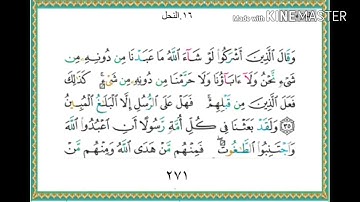 ١٦.النحل
Made with KINEMASTER
وَقَالَ ٱلَّذِينَ أَشْرَكُوا۟ لَوْ شَآءَ ٱللَّهُ مَا عَبَدْنَا مِن دُونِهِۦ مِن
شَىْءٍ نَّحْنُ وَلَآ ءَابَآؤُنَا وَلَا حَرَّمْنَا مِن دُونِهِۦ مِن شَىْءٍ ۚ كَذَٰلِكَ
فَعَلَ ٱلَّذِينَ مِن قَبْلِهِمْ ۚ فَهَلْ عَلَى ٱلرُّسُلِ إِلَّا ٱلْبَلَٰغُ ٱلْمُبِينُ
٣٥ وَلَقَدْ بَعَثْنَا فِى كُلِّ أُمَّةٍ رَّسُولًا أَنِ ٱعْبُدُوا۟ ٱللَّهَ
وَٱجْتَنِبُوا۟ ٱلطَّٰغُوتَ ۖ فَمِنْهُم مَّنْ هَدَى ٱللَّهُ وَمِنْهُم مَّنْ
٢٧١